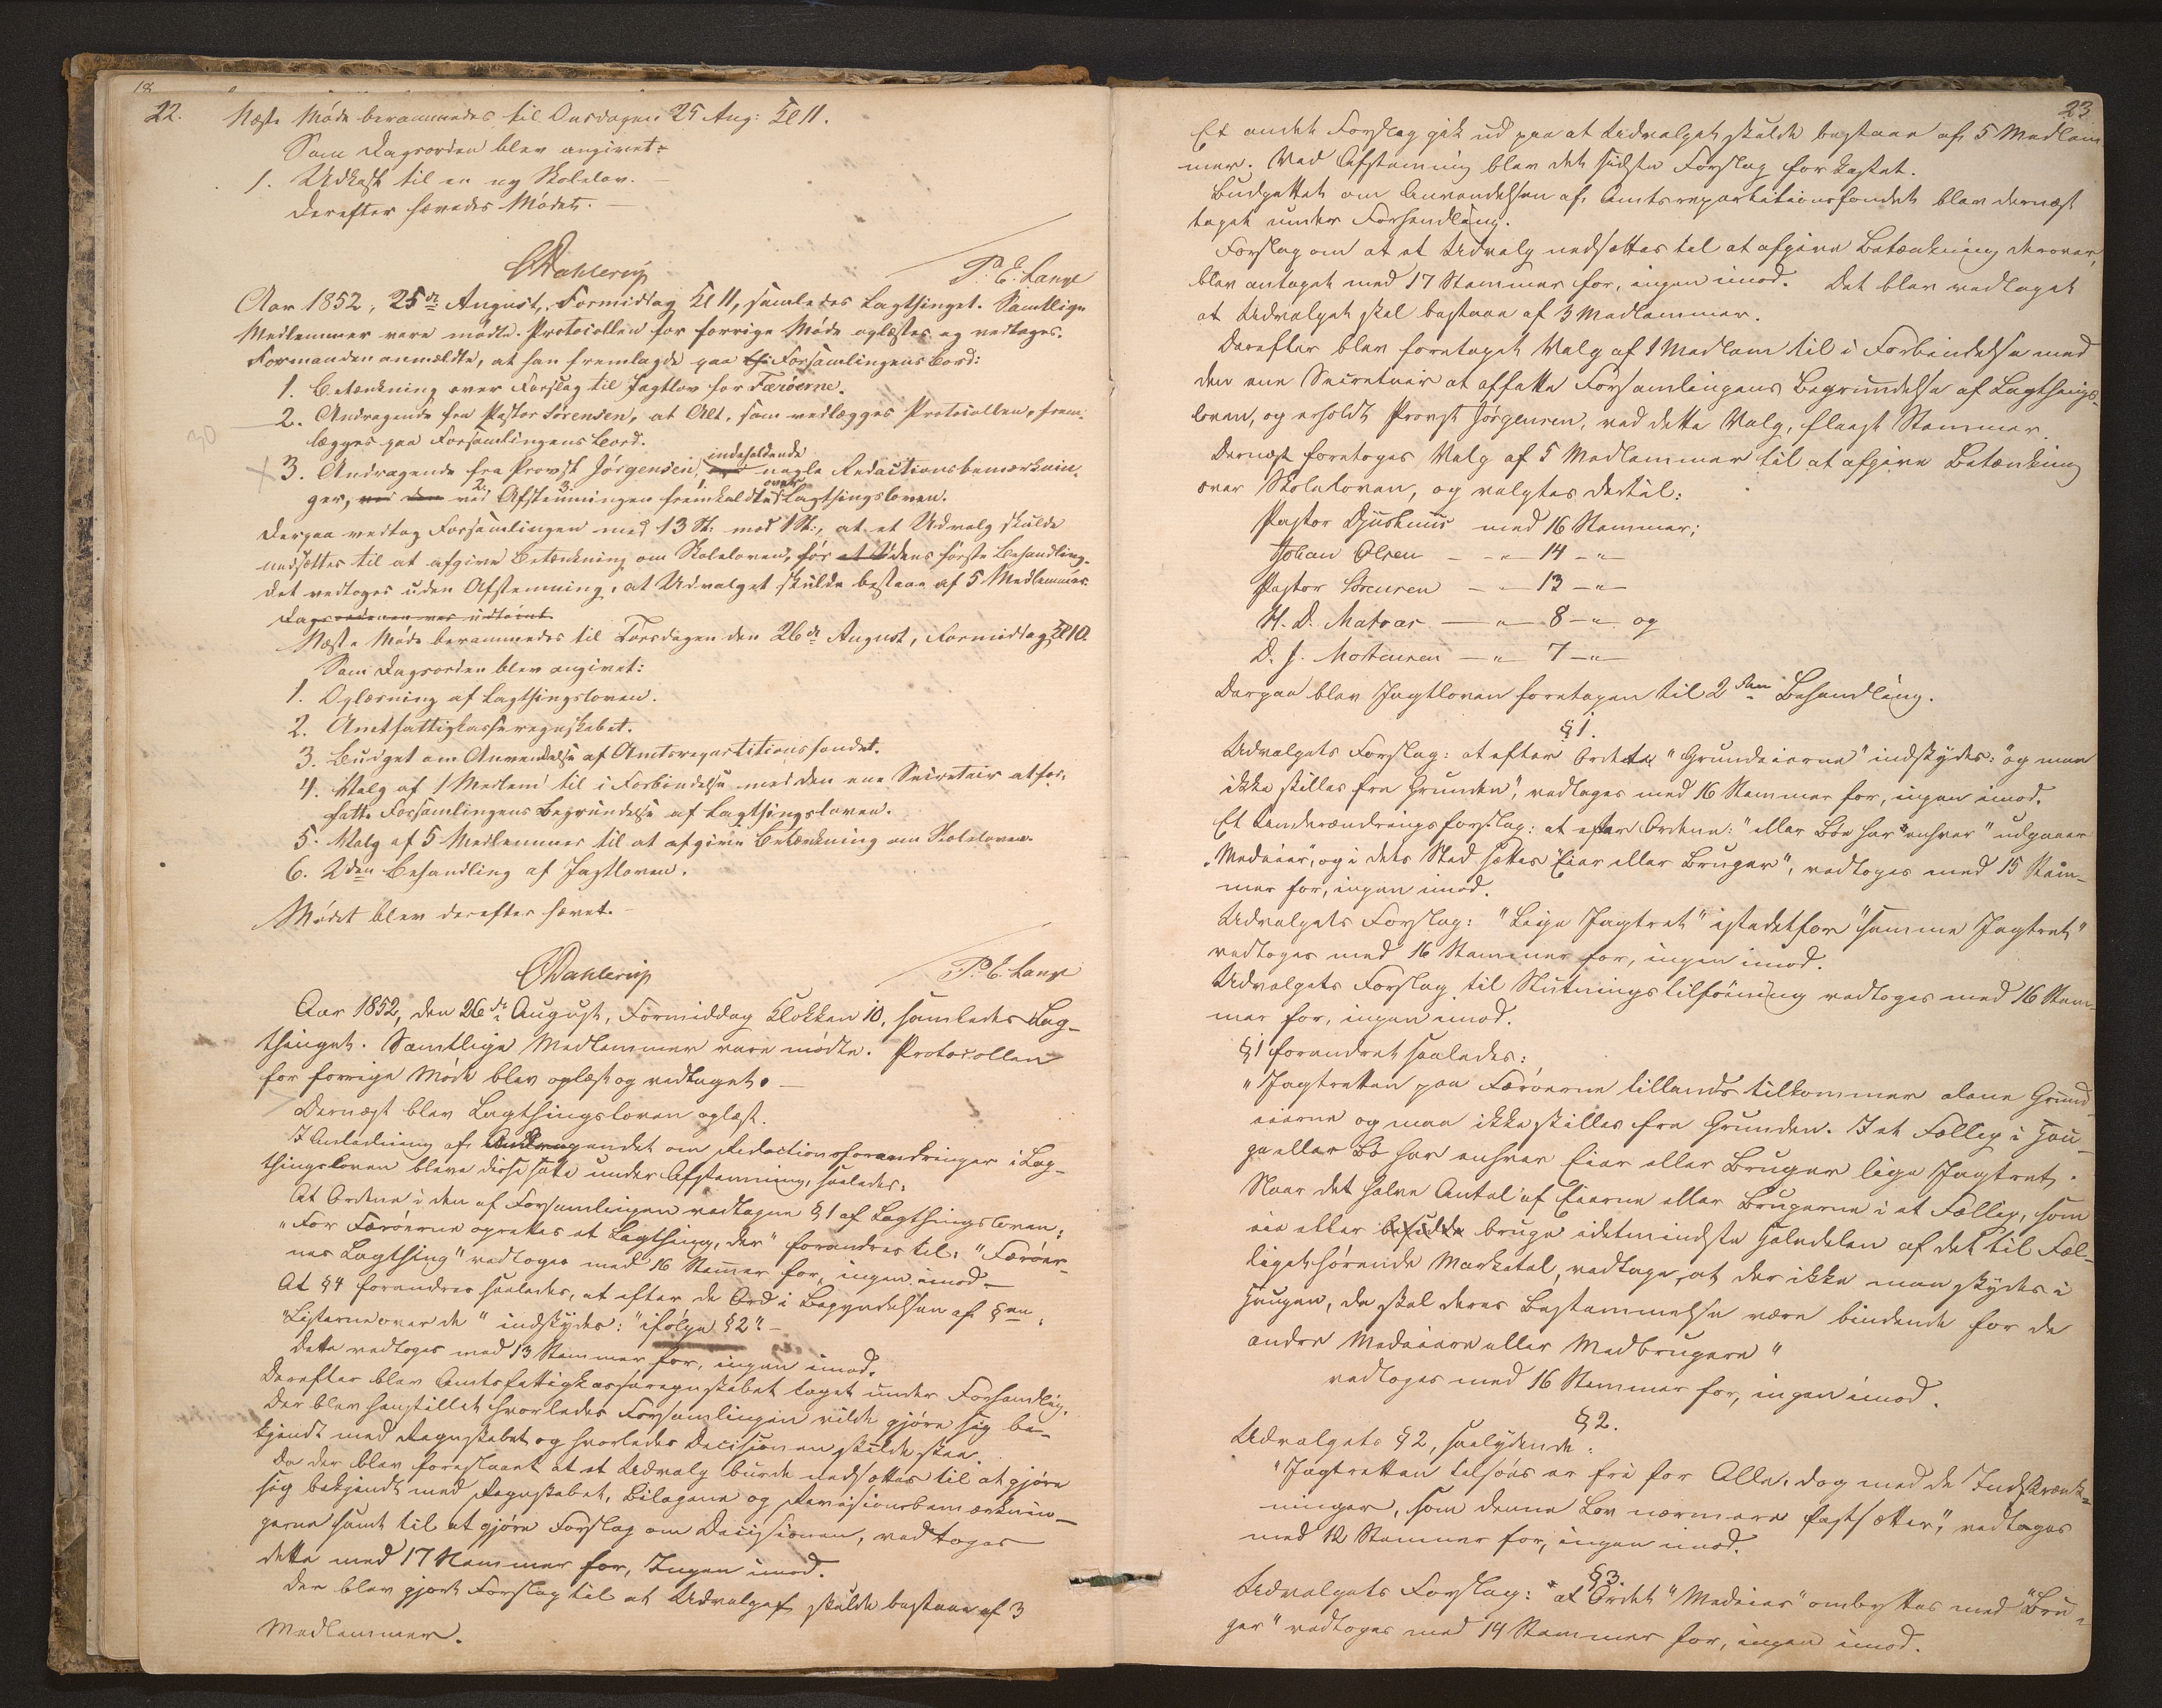 22.
Næste Møde berammedes til Onsdagen 25 Aug: Kl 11.
Som Dagsorden blev angivet:
1. Udkast til en ny Skolelov.
Derefter hævedes Mødet.
CDahlerup
P. E. Lange
Aar 1852, 25de August, Formiddag Kl 11, samledes Lagthinget. Samtlige
Medlemmer vare mødte. Protocollen for forrige Møde oplæstes og vedtoges.
Formanden anmeldte, at han fremlagde paa Forsamlingens Bord:
1. Betænkning over Forslag til Jagtlov for Færøerne.
2. Andragende fra Pastor Sørensen, at Alt, som vedlægges Protocollen, frem-
lægges paa Forsamlingens Bord.
30
3. Andragende fra Provst Jørgensen, indeholdende nogle Redactionsbemærknin-
ger, ved den ved Afstemningen fremkaldte over Lagthingsloven.
Derpaa vedtog Forsamlingen med 13 St: mod 1 St:, at et Udvalg skulde
nedsættes til at afgive Betænkning om Skoleloven, før dens første Behandling.
Det vedtoges uden Afstemning, at Udvalget skulde bestaae af 5 Medlemmer.
Dagsordenen var udtømt.
Næste Møde berammedes til Torsdagen den 26de August, Formiddag Kl 10.
Som Dagsorden blev angivet:
1. Oplæsning af Lagthingsloven.
2. Amtsfattigkasseregnskabet.
3. Budget om Anvendelse af Amtsrepartitionsfondet.
4. Valg af 1 Medlem til i Forbindelse med den ene Secretair at for-
fatte Forsamlingens Begrundelse af Lagthingsloven.
5. Valg af 5 Medlemmer til at afgive Betænkning om Skoleloven.
6. 2den Behandling af Jagtloven.
Mødet blev derefter hævet.
CDahlerup
P. E. Lange
Aar 1852, den 26de August, Formiddag Klokken 10, samledes Lag-
thinget. Samtlige Medlemmer vare mødte. Protocollen
for forrige Møde blev oplæst og vedtaget.
Dernæst blev Lagthingsloven oplæst.
I Anledning af Andragendet om Redactionsforandringer i Lag-
thingsloven bleve disse satte under Afstemning, saaledes:
At Ordene i den af Forsamlingen vedtagne § 1 af Lagthingsloven:
"For Færøerne oprettes et Lagthing, der" forandres til: "Færøer-
nes Lagthing" vedtoges med 16 Stemmer for, ingen imod.
At § 4 forandres saaledes, at efter de Ord i Begyndelsen af §en:
"Listerne over de" indskydes: "ifølge § 2".
Dette vedtoges med 13 Stemmer for, ingen imod.
Derefter blev Amtsfattigkasseregnskabet taget under Forhandling.
Der blev henstillet hvorledes Forsamlingen vilde gjøre sig be-
kjendt med Regnskabet og hvorledes Decisionen skulde skee.
Da der blev foreslaaet at et Udvalg burde nedsættes til at gjøre
sig bekjendt med Regnskabet, Bilagene og Revisionsbemærknin-
gerne samt til at gjøre Forslag om Decisionen, vedtoges
dette med 17 Stemmer for, Ingen imod.
Der blev gjort Forslag til at Udvalget skulde bestaae af 3
Medlemmer.
23.
Et andet Forslag gik ud paa at Udvalget skulde bestaae af 5 Medlem-
mer. Ved Afstemning blev det sidste Forslag forkastet.
Budgettet om Anvendelsen af Amtsrepartitionsfondet blev dernæst
taget under Forhandling.
Forslag om at et Udvalg nedsættes til at afgive Betænkning derover,
blev antaget med 17 Stemmer for, ingen imod. Det blev vedtaget
at Udvalget skal bestaae af 3 Medlemmer.
Derefter blev foretaget Valg af 1 Medlem til i Forbindelse med
den ene Secretair at affatte Forsamlingens Begrundelse af Lagthings-
loven, og erholdt Provst Jørgensen, ved dette Valg, fleest Stemmer.
Dernæst foretoges Valg af 5 Medlemmer til at afgive Betænkning
over Skoleloven, og valgtes dertil:
Pastor Djurhuus med 16 Stemmer;
Johan Olsen — " — 14 — " —
Pastor Sørensen — " — 13 — " —
H. D. Matras — " — 8 — " — og
D. J. Mortensen — " — 7 — " —
Derpaa blev Jagtloven foretagen til 2den Behandling.
§ 1.
Udvalgets Forslag: at efter Ordet "Grundeierne" indskydes: "og maa
ikke skilles fra Grunden", vedtoges med 16 Stemmer for, ingen imod.
Et Underændringsforslag: at efter Ordene: "eller Bøe har enhver" udgaaer
"Medeier", og i dets Sted sættes "Eier eller Bruger", vedtoges med 15 Stem-
mer for, ingen imod.
Udvalgets Forslag: "Lige Jagtret" istedetfor "samme Jagtret"
vedtoges med 16 Stemmer for, ingen imod.
Udvalgets Forslag til Slutningstilføining vedtoges med 16 Stem-
mer for, ingen imod.
§ 1 forandret saaledes:
"Jagtretten paa Færøerne tillands tilkommer alene Grund-
eierne og maa ikke skilles fra Grunden. I et Fælleg i Hau-
ge eller Bø har enhver Eier eller Bruger lige Jagtret.
Naar det halve Antal af Eierne eller Brugerne i et Fælleg, som
eie eller bruge idetmindste Halvdelen af det til Fæl-
leget hørende Marketal, vedtage, at der ikke maa skydes i
Haugen, da skal deres Bestemmelse være bindende for de
andre Medeiere eller Medbrugere"
vedtoges med 16 Stemmer for, ingen imod.
§ 2.
Udvalgets § 2, saalydende:
"Jagtretten tilsøes er fri for Alle, dog med de Indskrænk-
ninger, som denne Lov nærmere fastsætter," vedtoges
med 12 Stemmer for, ingen imod.
§ 3.
Udvalgets Forslag: at Ordet "Medeier" ombyttes med "Bru-
ger" vedtoges med 14 Stemmer for, ingen imod.